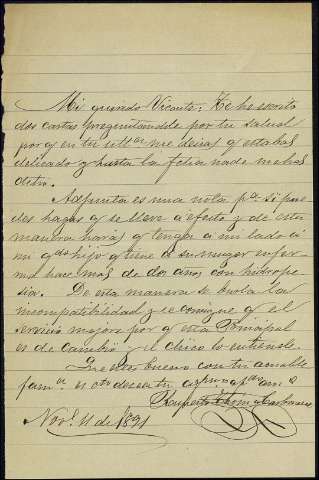 Mi querido Vicente: Te he escrito
dos cartas preguntandote por tu salud
por q en tu ult.ª me decias q estabas
delicado y hasta la fecha nada me has
dicho.
Adjunta es una nota p.ª si pue
des hagas q se lleve a efecto y de esta
manera harás q tenga á mi lado á
mi q.do hijo q tiene á su muger enfer
ma hace mas de dos años con hidrope
sia. De esta manera se burla la
incompatibilidad y se consigue q el
servicio mejore por q esta Principal
es de cambio y el chico lo entiende.
bueno con tu amable
fam.ª es cto desea tu
Nov.e 11 de 1891